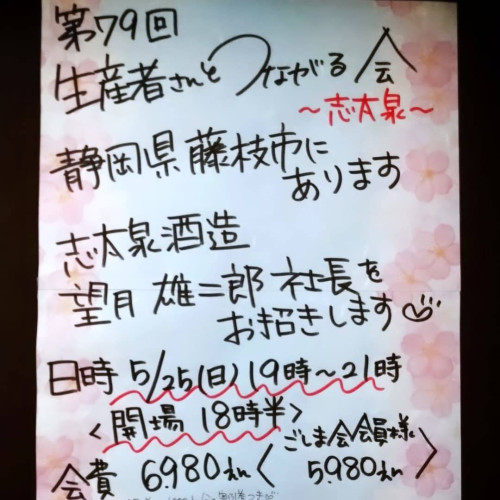 第79回
生産者さんとつながる会
～志太泉～
静岡県藤枝市に
あります
志太泉酒造
望月 雄二郎 社長を
お招きします
日時 5/25(日) 19時～21時
<開場 18時半>
会費 6980えん< ごしま会会員様 5980えん >